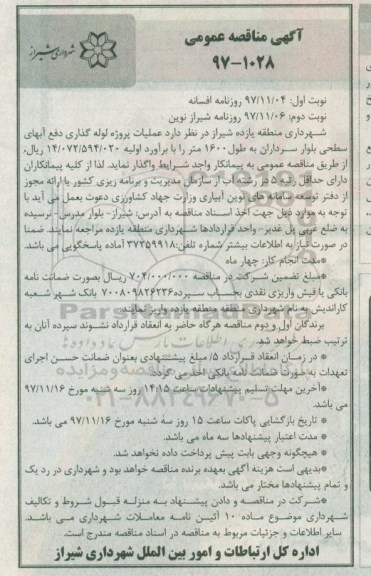 شهرداری شیراز
آگهی مناقصه عمومی
۹۷-۱۰۲۸
نوبت اول: ۹۷/۱۱/۰۴ روزنامه افسانه
نوبت دوم: ۹۷/۱۱/۰۶ روزنامه شیراز نوین
شهرداری منطقه یازده شیراز در نظر دارد عملیات پروژه لوله گذاری دفع آبهای
سطحی بلوار سرداران به طول ۱۶۰۰ متر را با برآورد اولیه ۱۴/۰۷۲/۵۹۴/۰۲۰ ریال،
از طریق مناقصه عمومی به پیمانکار واجد شرایط واگذار نماید. لذا از کلیه پیمانکاران
دارای حداقل رتبه ۵ در رشته آب از سازمان مدیریت و برنامه ریزی کشور یا ارائه مجوز
از دفتر توسعه سامانه های نوین آبیاری وزارت جهاد کشاورزی دعوت بعمل می آید با
توجه به موارد ذیل جهت اخذ اسناد مناقصه به آدرس: شیراز- بلوار مدرس- نرسیده
به ضلع غربی پل غدیر- واحد قراردادها شهرداری منطقه یازده مراجعه نمایند. ضمنا
در صورت نیاز به اطلاعات بیشتر شماره تلفن: ۳۷۲۵۹۹۱۸ آماده پاسخگویی می باشد.
*مدت انجام کار: چهار ماه
*مبلغ تضمین شرکت در مناقصه ۷۰۴/۰۰۰/۰۰۰ ریال بصورت ضمانت نامه
بانکی یا فیش واریزی نقدی بحساب سپرده ۷۰۰۸۰۹۸۲۶۲۳۶ بانک شهر شعبه
کاراندیش به نام شهرداری شعبه منطقه یازده واریز نمایند.
برندگان اول و دوم مناقصه هرگاه حاضر به انعقاد قرارداد نشوند سپرده آنان به
ترتیب ضبط خواهد شد.
* در زمان انعقاد قرارداد ۵٪ مبلغ پیشنهادی بعنوان ضمانت حسن اجرای
تعهدات به صورت ضمانت نامه بانکی اخذ می گردد.
*آخرین مهلت تسلیم پیشنهادات ساعت ۱۴:۱۵ روز سه شنبه مورخ ۹۷/۱۱/۱۶
می باشد.
* تاریخ بازگشایی پاکات ساعت ۱۵ روز سه شنبه مورخ ۹۷/۱۱/۱۶ می باشد.
* مدت اعتبار پیشنهادها سه ماه می باشد.
* هیچگونه وجهی بابت پیش پرداخت داده نخواهد شد.
*بدیهی است هزینه آگهی بعهده برنده مناقصه خواهد بود و شهرداری در رد یک
و تمام پیشنهادها مختار می باشد.
*شرکت در مناقصه و دادن پیشنهاد به منزله قبول شروط و تکالیف
شهرداری موضوع ماده ۱۰ آئین نامه معاملات شهرداری می باشد.
سایر اطلاعات و جزئیات مربوط به مناقصه در اسناد مناقصه مندرج است.
اداره کل ارتباطات و امور بین الملل شهرداری شیراز